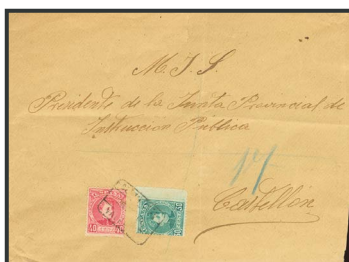 M. I. S.
Presidente de la Junta Provincial de
Instruccion Pública
Castellón